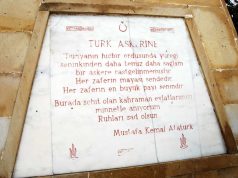 TÜRK ASKERİNE
Dünyanın hiçbir ordusunda yüreği
seninkinden daha temiz daha sağlam
bir askere rastgelinmemiştir
Her zaferin mayası sendedir
Her zaferin en büyük payı senindir
Burada şehit olan kahraman evlatlarımızı
minnetle anıyorum
Ruhları şad olsun
Mustafa Kemal Atatürk